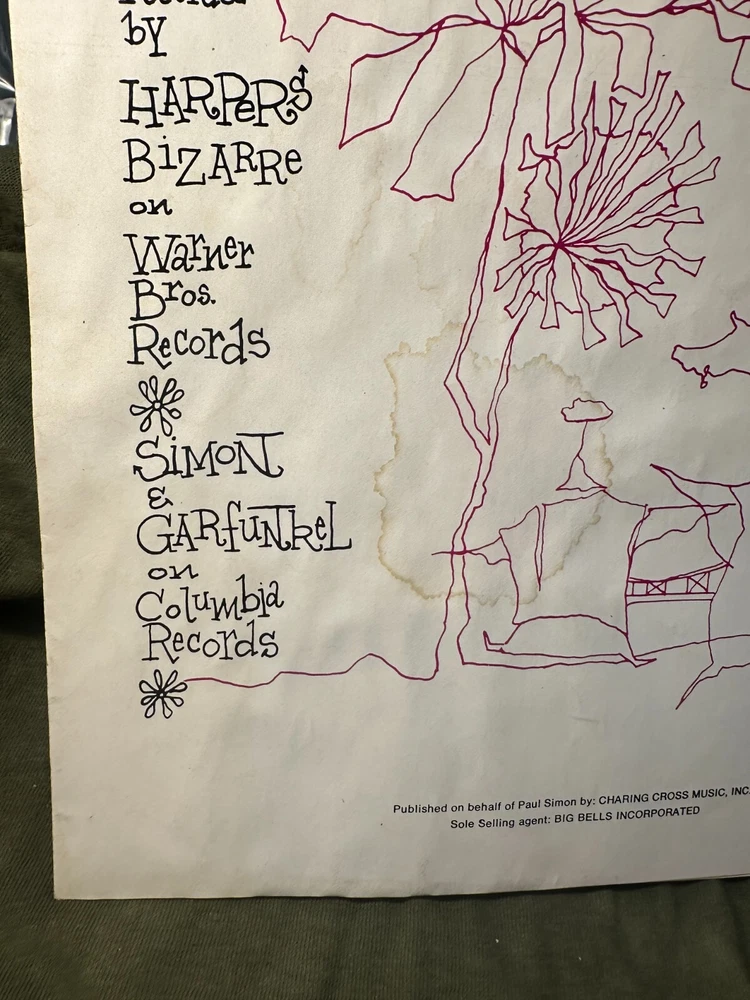 by
HARPERS
BiZARRe
on
Warner
Bros.
Records
SiMON
&
GARfuNkeL
on
Columbia
Records
Published on behalf of Paul Simon by: CHARING CROSS MUSIC, INC.
Sole Selling agent: BIG BELLS INCORPORATED